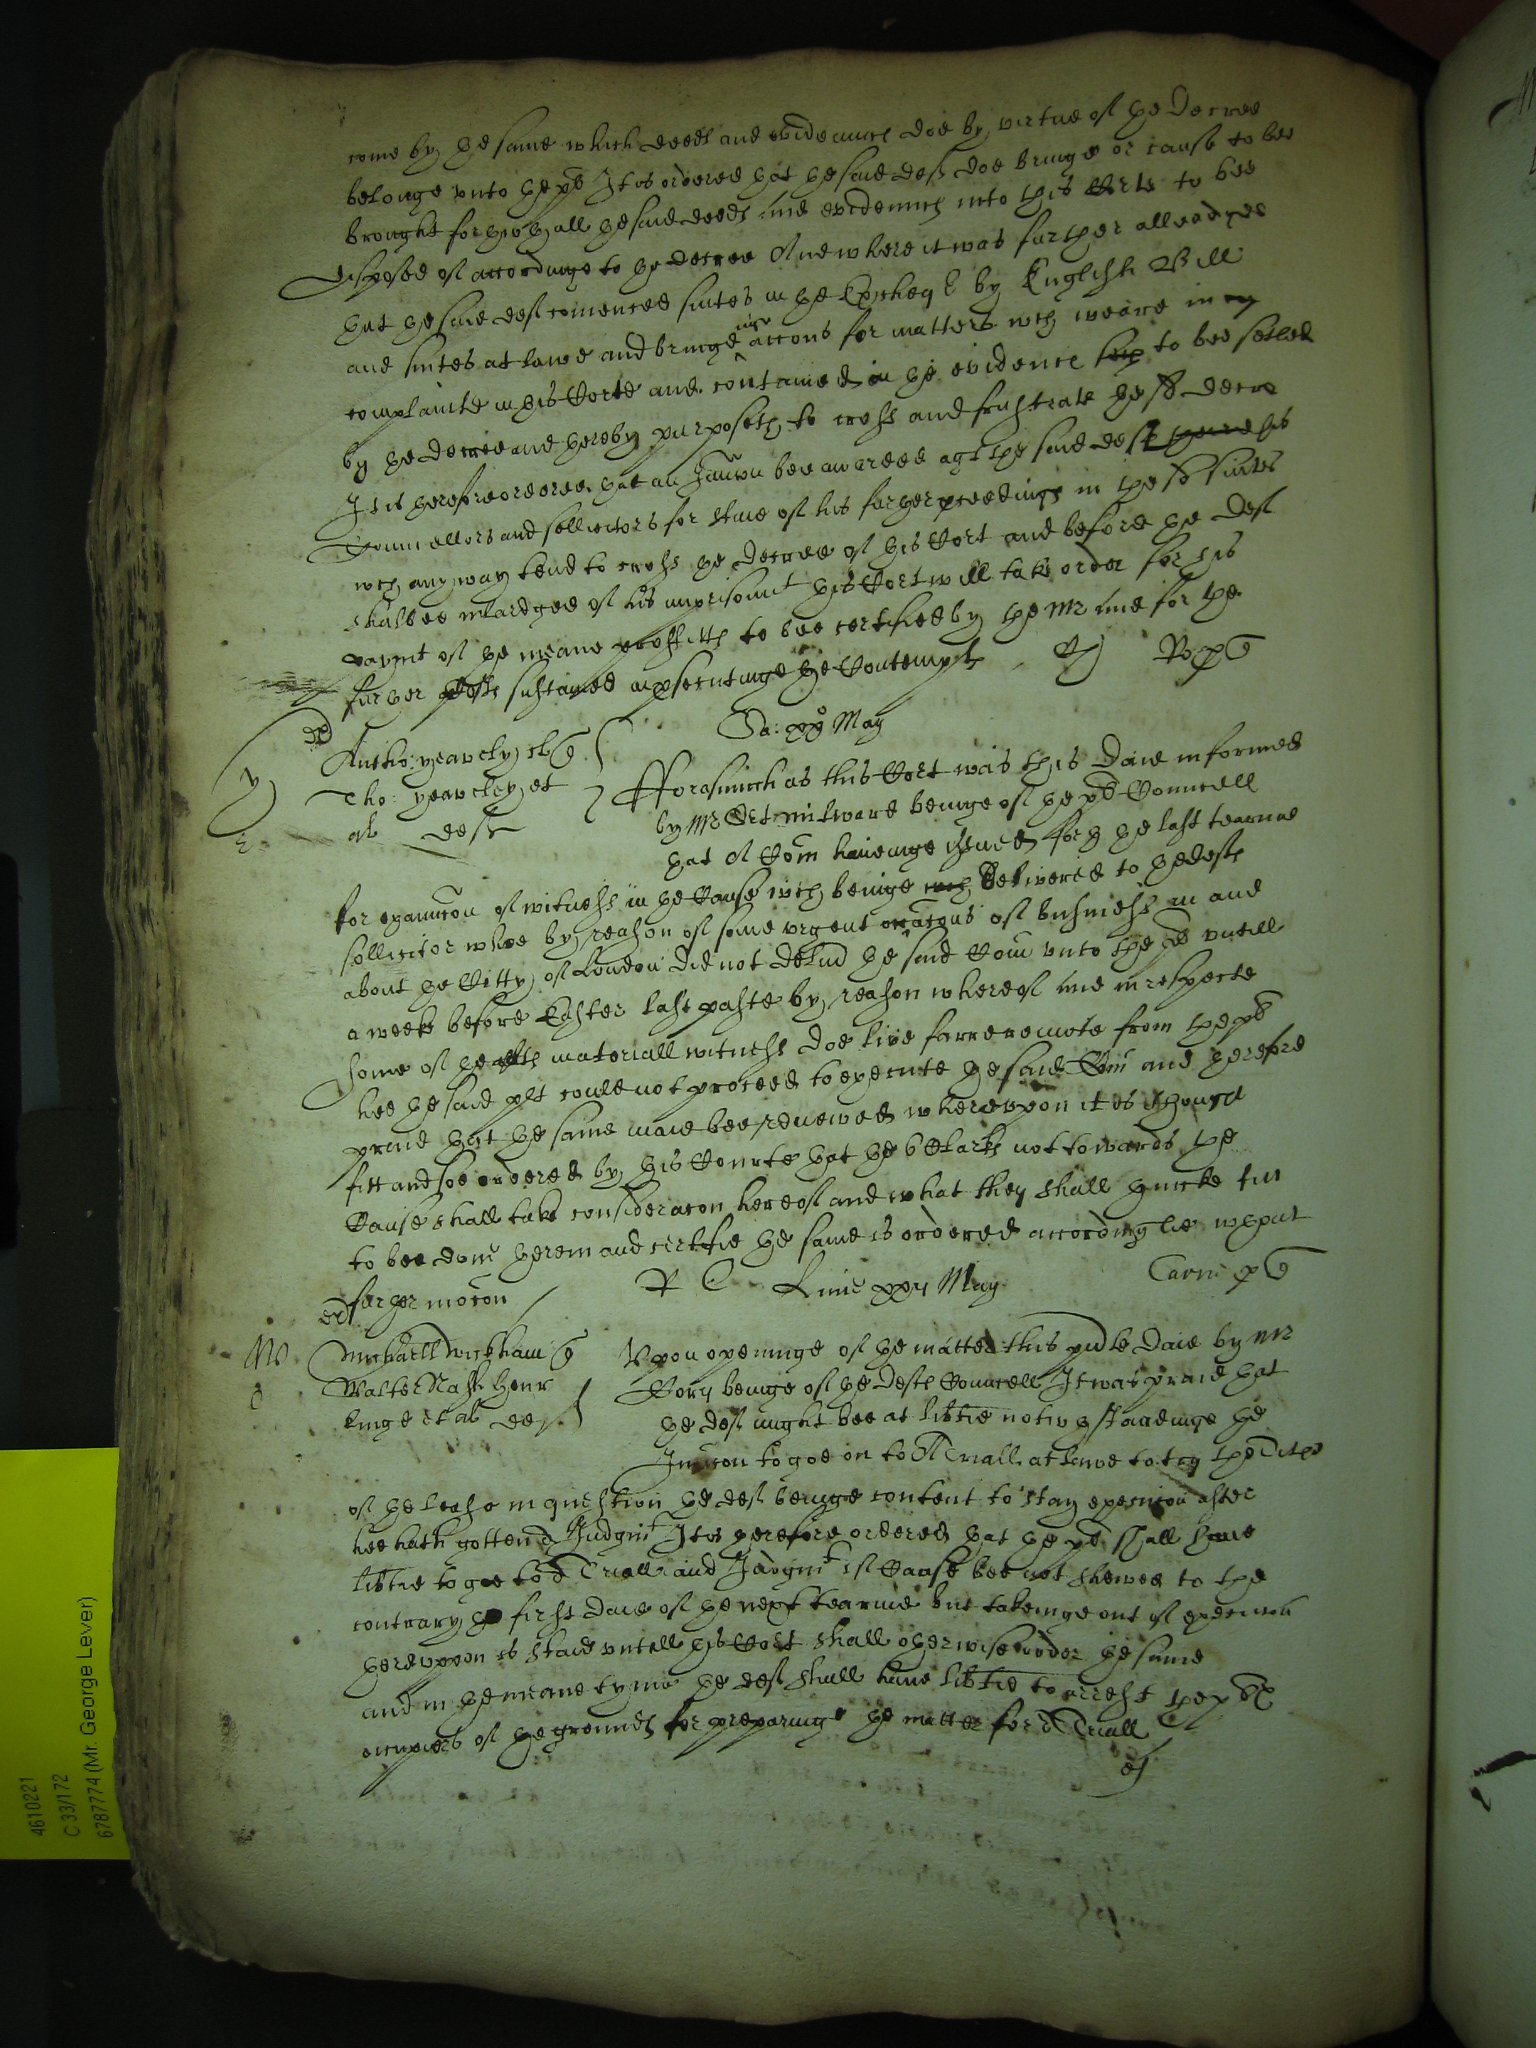 come by the same which deeds and evidences doe by virtue of the Decree
belonge unto the plt It is ordered that the said deft doe bringe or cause to bee
brought forthwth all the said deeds and evidences into this Corte to bee
disposed of accordinge to the decree And where it was further alleadged
that the said deft comenced suites in the Excheqr by English Bill
and suites at lawe and bringe accons for matters wch weare in
complainte in this Corte and contained in the evidence to bee setled
by the decree and thereby purposeth to cross and frustrate the sd decree
It is therefore ordered that an Iniuncon bee awarded agt the said deft his
Councellors and sollicitors for staie of his further proceedings in the sd suites
wch any way tend to cross the decree of this Cort and before the deft
shalbee inlardged of his imprisonmt this Cort will take order for his
paymt of the meane proffitts to bee certified by the Mr and for the
further Costs sustained in psecutinge the Contempts
Sa: xxo May
Antho: yeaveley
Tho: yeaveley et
al deft
Forasmuch as this Cort was this Daie informed
by Mr Milward beinge of the plts Councell
that A Com haveinge issued forth the last tearme
for examicon of witness in the Cause wch beinge delivered to the defts
sollicitor whoe by reason of some urgent occacons of business in and
about the Citty of London did not delivr the said Com unto the plt untill
a weeke before Easter last paste by reason whereof and in respecte
some of the plts materiall witness doe live farre remote from the plt
hee the said plt could not proceed to execute the said Com and therefore
praied that the same maie bee renewed whereupon it is thought
fitt and soe ordered by this Courte that the 6 Clarks not towards the
Cause shall take consideracon hereof and what they shall thincke fitt
to bee done therein and certifie the same is ordered accordinglie wthout
further mocon
R C Lune xxij May
Michaell Wickham
Walter Nash Henr
Kinge et al deft
Upon openinge of the matter this pnte Daie by Mr
Cory beinge of the defts Councell It was praied that
the deft might bee at libtie notwthstandinge the
Iniuncon to goe on to A Triall at lawe to try the Title
of the lease in question the deft beinge content to stay execucon after
hee hath gotten a Iudgmt It is therefore ordered that the plt shall have
libtie to goe to a Triall and Iudgmt if Cause bee not shewed to the
contrary the first daie of the next tearme but takeinge out of execucon
thereuppon is staid untill this Cort shall otherwise order the same
and in the meane tyme the deft shall have libtie to arrest the plt
occupiers of the grounds for preparinge the matter for a Triall
4610221
C 33/172
6787774 (Mr. George Lever)